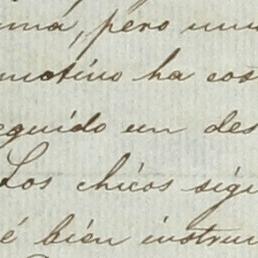 ma, pero mu
motivo ha cos
eguido un des
Los chicos sigu
é bien instru